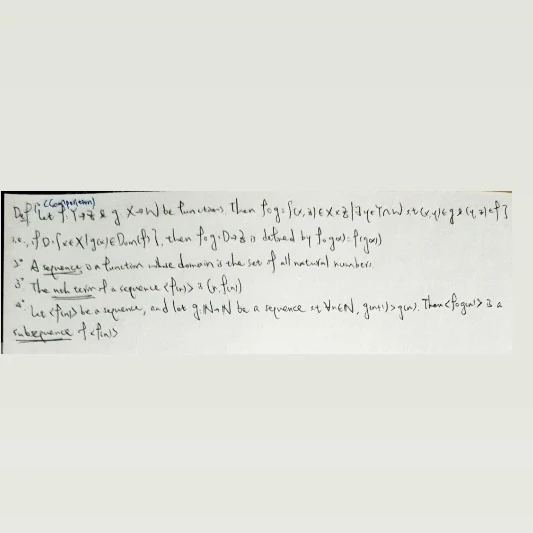 (Composition)
Def 1° Let f: Y→Z & g: X→W be functions. Then f∘g={(x,z)∈X×Z|∃y∈Y∩W st (x,y)∈g & (y,z)∈f}
i.e., if D={x∈X|g(x)∈Dom(f)}, then f∘g: D→Z is defined by f∘g(x)=f(g(x))
2° A sequence is a function whose domain is the set of all natural numbers.
3° The nth term of a sequence <f(n)> is (n, f(n))
4° Let <f(n)> be a sequence, and let g: N→N be a sequence st ∀n∈N, g(n+1)>g(n). Then <f∘g(n)> is a
subsequence of <f(n)>